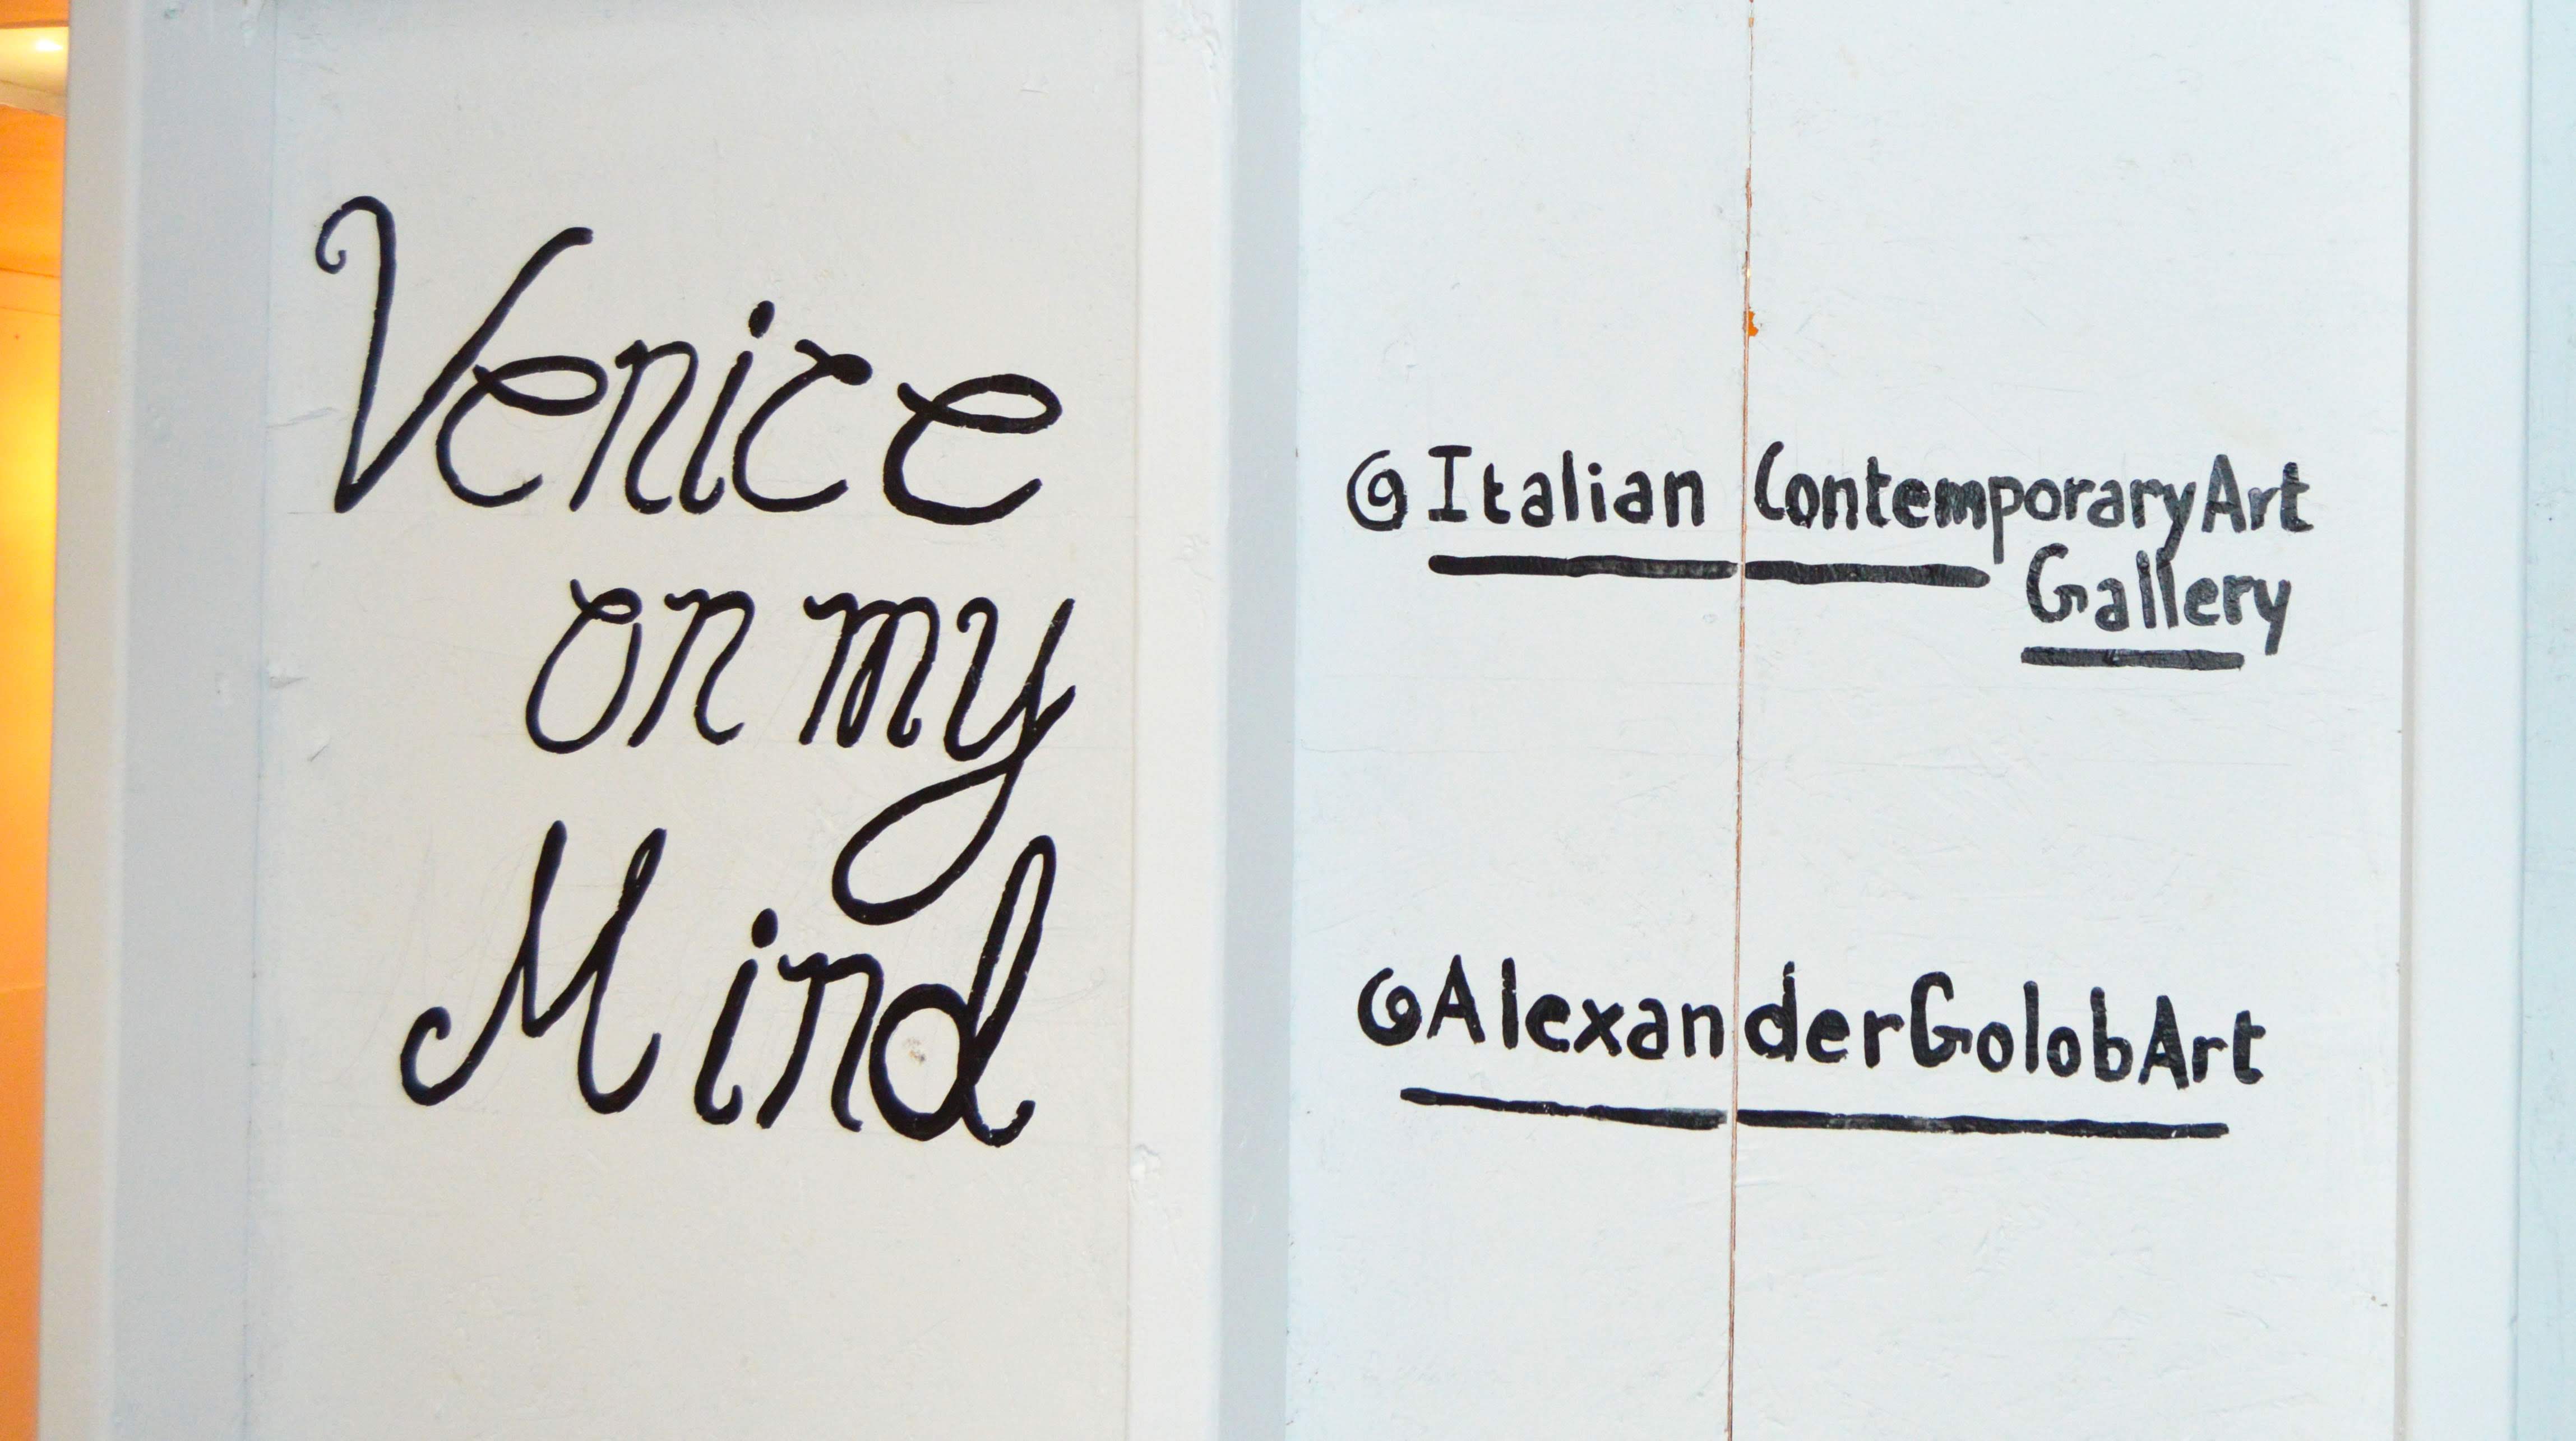 Venice
on my
Mind
@Italian ContemporaryArt
Gallery
@AlexanderGolobArt